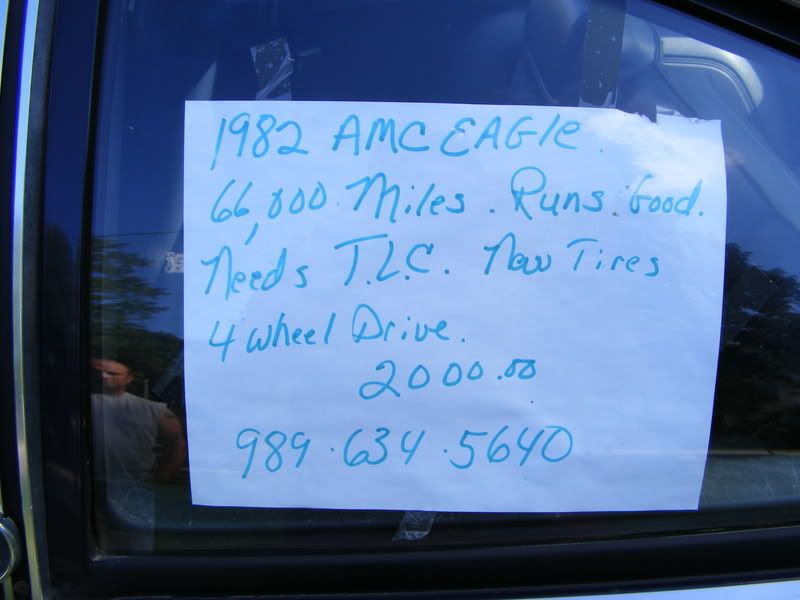 1982 AMC EAGle.
66,000 Miles. Runs Good.
Needs T.L.C. New Tires
4 wheel Drive.
2000.00
989.634.5640